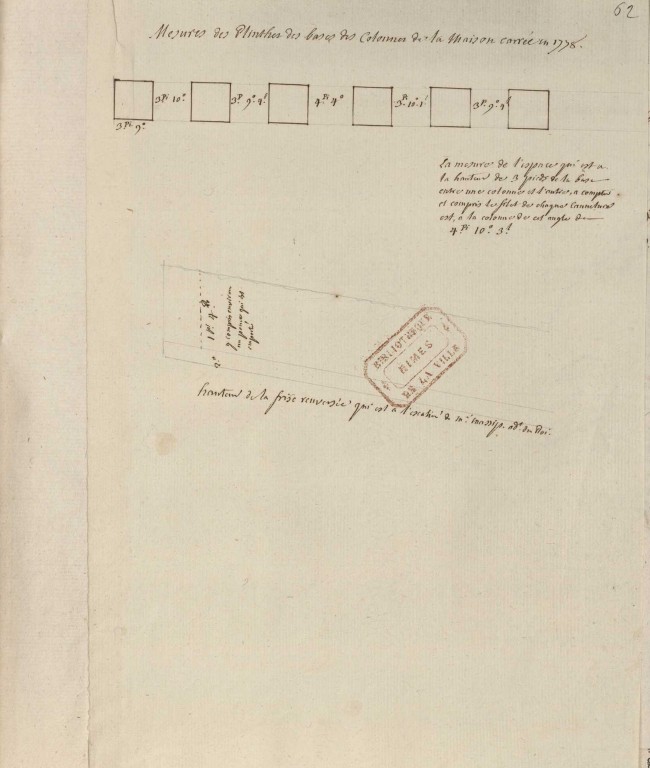 62
Mesures des Plinthes des bases des Colonnes de la Maison carrée en 1778.
3.Pi 10.o 3.P 9.o 4.l 4.Pi 4.o 3.Pi 10.o 1.l 3.P. 9.o 4.l
3.Pi 9.o
La mesure de l'espace qui est a
la hauteur des 3 pieds de la base
entre une colonne et l'autre, a compter
et compris le filet de chaque cannelure
est, a la colonne de cet angle de
4.Pi 10.o 3.l
1.Pi 4.o
y compris environ
un pouce qui est
emporté
2.o
BIBLIOTHEQUE
NIMES
DE LA VILLE
hauteur de la frise renversée qui est a l'escalier de m.r massip ad.t du Roi.